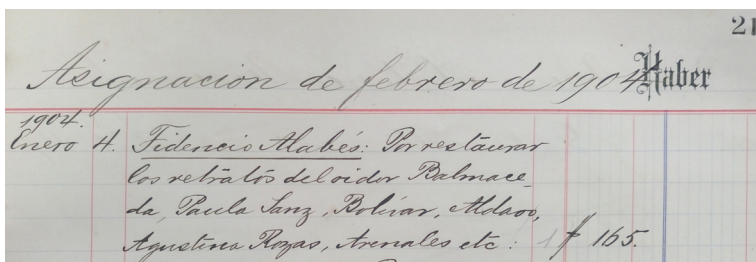 21
Asignacion de febrero de 1904
Haber
1904.
Enero 4. Fidencio Alabés: Por restaurar
los retratos del oidor Balmace-
da, Paula Sanz, Bolívar, Aldao,
Agustina Rozas, Arenales etc: 1 $ 165.